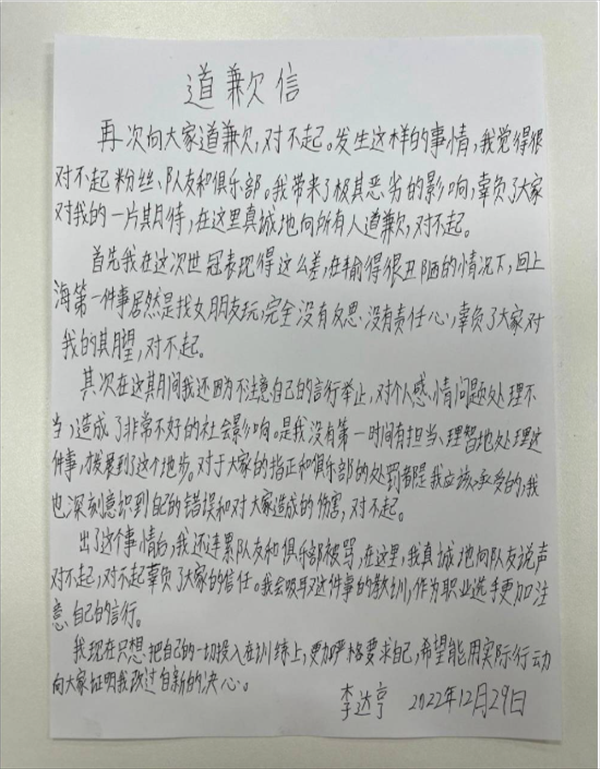 道歉信
再次向大家道歉,对不起。发生这样的事情,我觉得很
对不起粉丝、队友和俱乐部。我带来了极其恶劣的影响,辜负了大家
对我的一片期待,在这里真诚地向所有人道歉,对不起。
首先我在这次世冠表现得这么差,在输得很丑陋的情况下,回上
海第一件事居然是找女朋友玩,完全没有反思、没有责任心,辜负了大家对
我的期望,对不起。
其次在这期间我还因为不注意自己的言行举止,对个人感情问题处理不
当,造成了非常不好的社会影响。是我没有第一时间有担当、理智地处理这
件事,发展到了这个地步。对于大家的指正和俱乐部的处罚都是我应该承受的,我
也深刻意识到自己的错误和对大家造成的伤害,对不起。
出了这个事情后,我还连累队友和俱乐部被骂,在这里,我真诚地向队友说声
对不起,对不起辜负了大家的信任。我会吸取这件事的教训,作为职业选手更加注
意自己的言行。
我现在只想把自己的一切投入在训练上,更加严格要求自己,希望能用实际行动
向大家证明我改过自新的决心。
李达亨 2022年12月29日